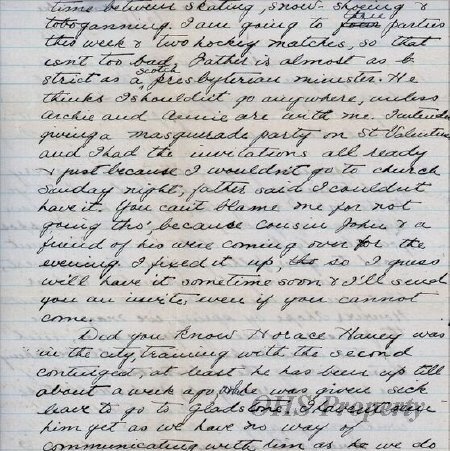 time between skating, snow-shoeing &
tobogganning. I am going to three parties
this week & two hockey matches, so that
isn't too bad, Father is almost as b
strict as a Scotch presbyterian minister. He
thinks I shouldn't go anywhere, unless
Archie and Annie are with me. I intended
giving a masquerade party on St Valentine
and I had the invitations all ready
& just because I wouldn't go to church
Sunday night, father said I couldn't
have it. You can't blame me for not
going tho', because cousin John & a
friend of his were coming over for the
evening I fixed it up, tho so I guess
will have it sometime soon & I'll send
you an invite even if you cannot
come.
Did you know Horace Haney was
in the city, training with the second
contingent, at least he has been up till
about a week ago, he was given sick
leave to go to Gladstone I haven't seen
him yet as we have no way of
communicating with him as he we do
OHS Property